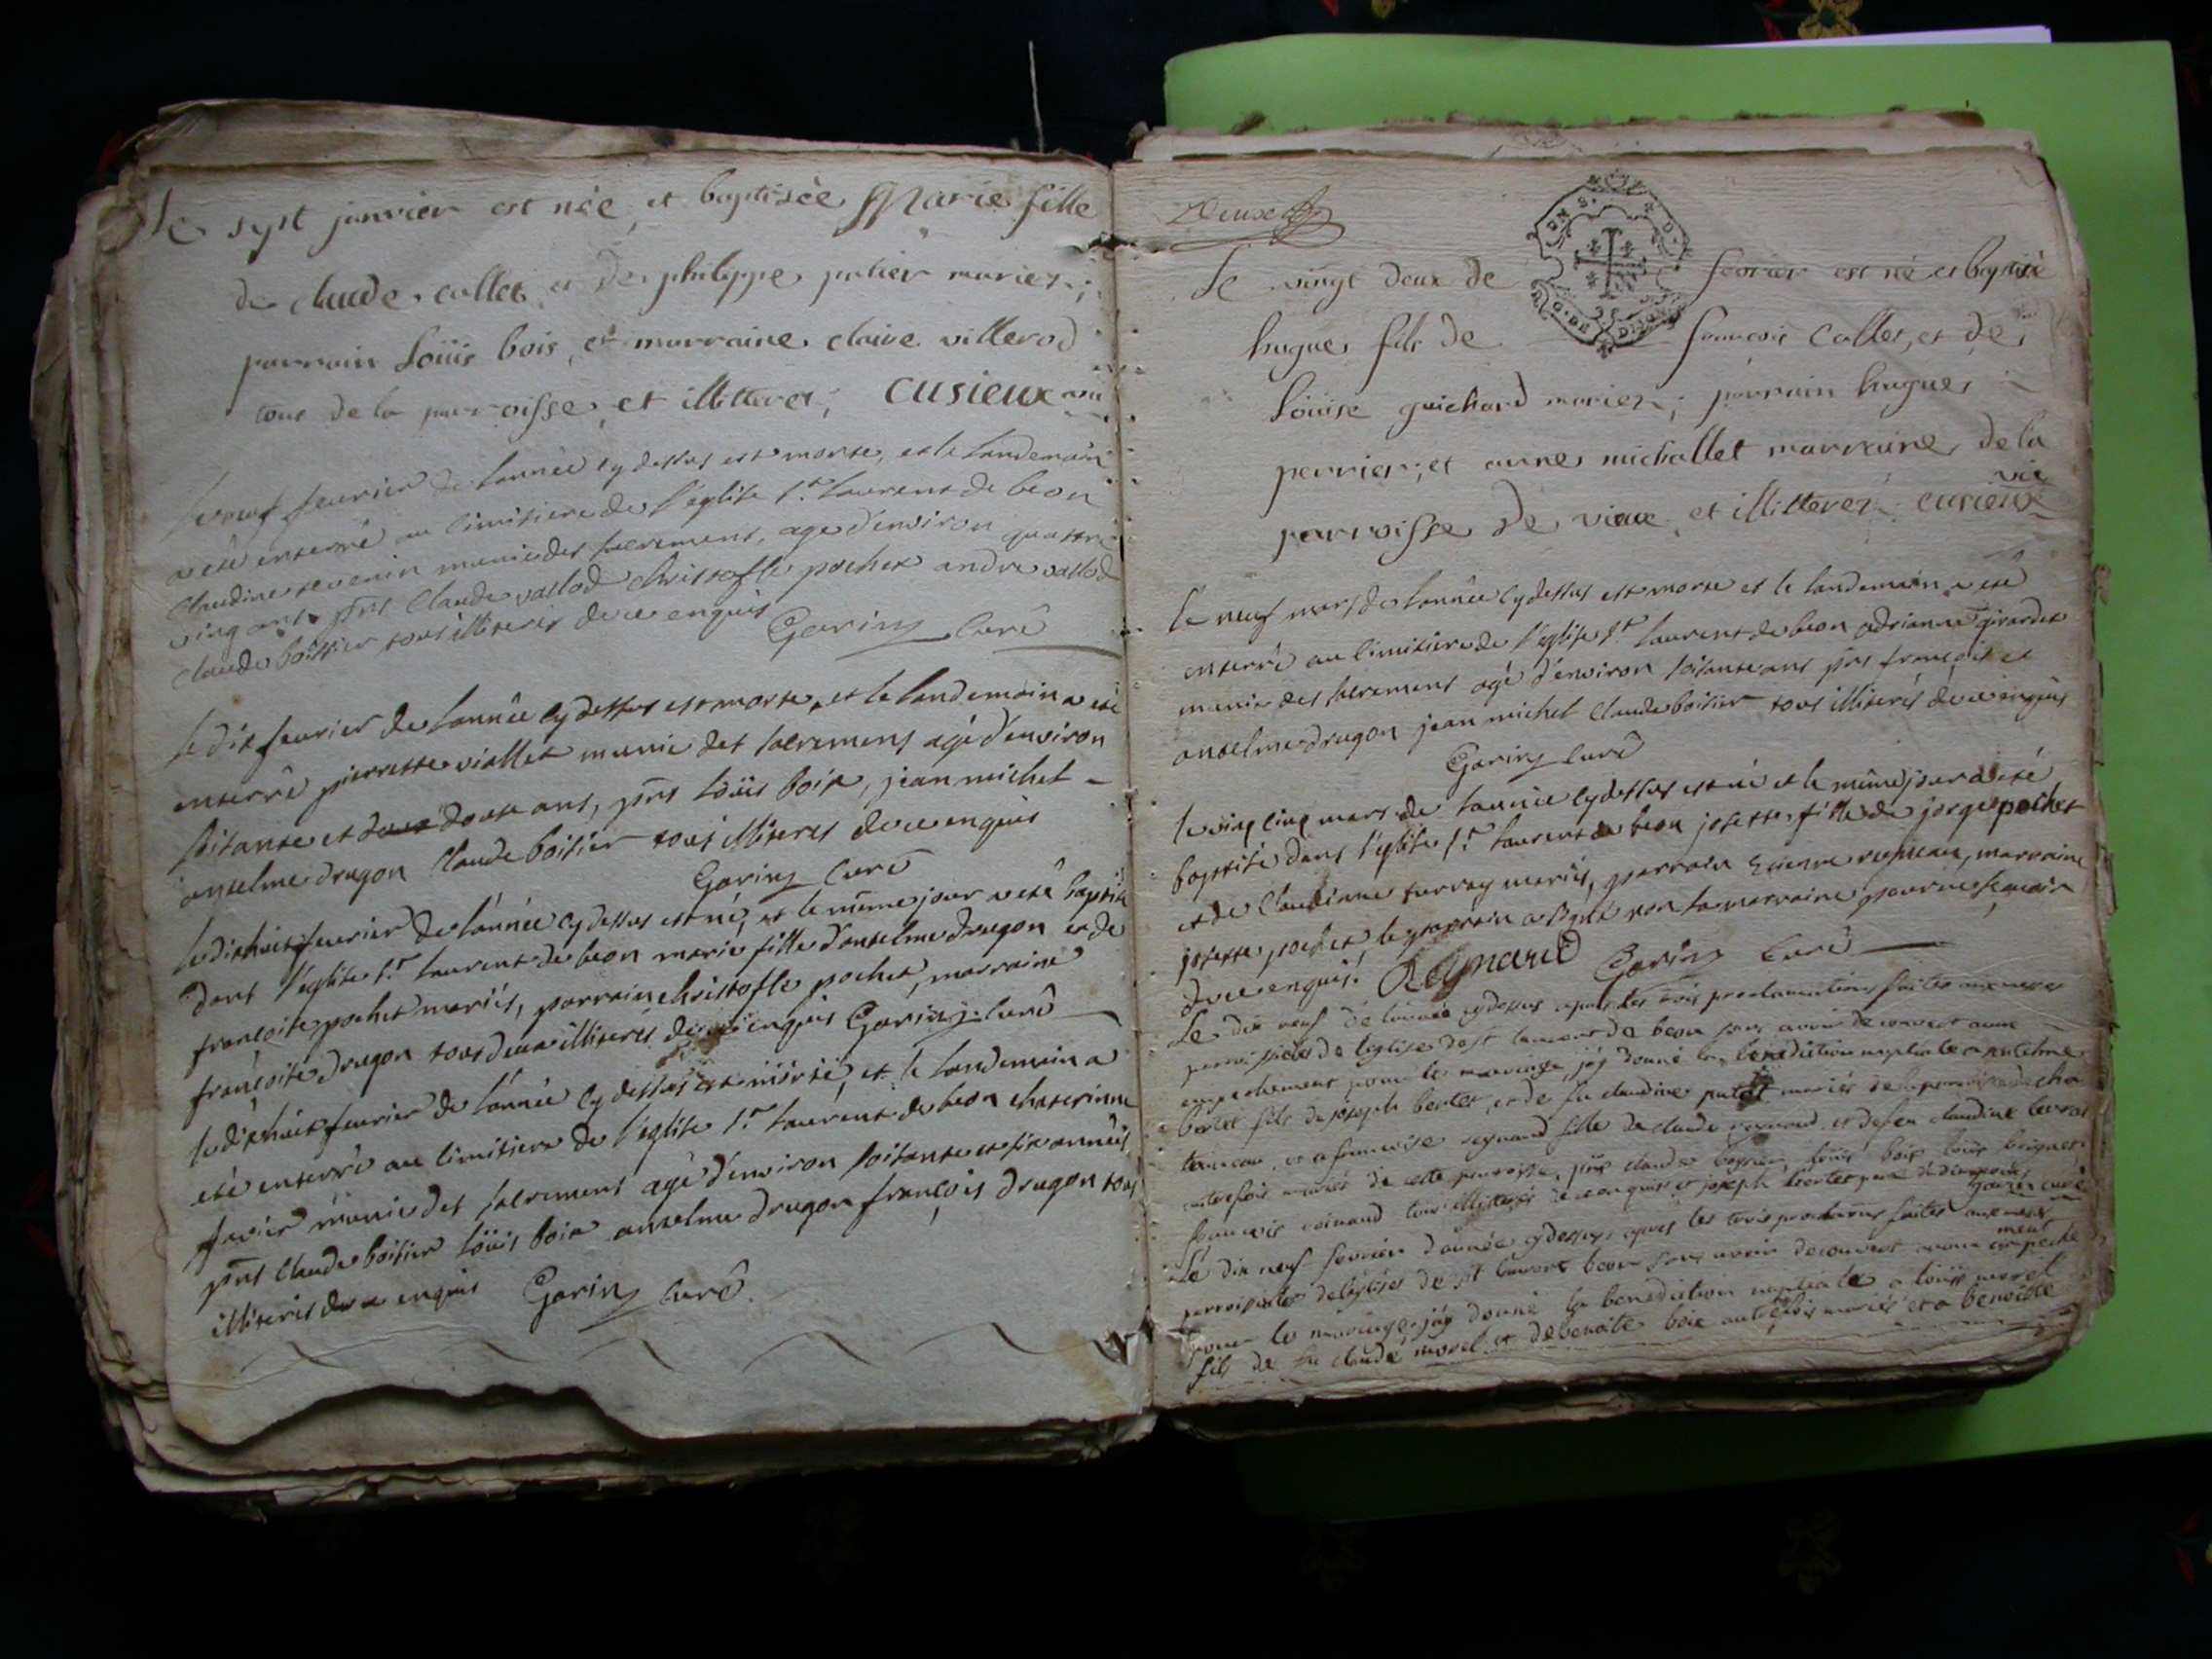 Le sept janvier est née et baptisée Marie fille
de claude collet et de philippe putier mariez;
parrain Loüis bois, et marraine claire villerod
tous de la parroisse, et illitterez; Cusieux vic
le neuf feurier de lannée cy dessus est morte, et le landemain
a eté enterré au cimitiere de l'eglise st laurent de beon
Claudine munie des sacremens, agé d'environ quattre
ving ans pnts Claude vallod Christofle pochet andre vallod
Claude boissier tous illiteres de ce enquis
Garin curé
le dix feurier de lannée cy dessus est morte, et le landemain a eté
enterré pierrette viallet munie des sacremens agé d'environ
soitante et douse ans, pnts loüis boix, jean michel
anselme dragon Claude boisier tous illiteres de ce enquis
Garin curé
le dixhuit feurier de lannée cy dessus est né, et le même jour a eté baptisé
dans l'eglise st laurent de beon marie fille d'anselme dragon et de
françoise pochet mariés, parrain christofle pochet, marraine
françoise dragon tous deux illiterés de ce enquis Garin curé
le dixhuit feurier de lannée cy dessus est morte, et le landemain a
eté enterré au cimitiere de l'eglise st laurent de beon chaterinne
munie des sacremens agé d'environ soitante et six années
pnts Claude boisier loüis boix anselme dragon françois dragon tous
illiteres de ce enquis Garin curé.
Deux
Le vingt deux de fevrier est né et baptisé
hugue fils de francois Collet, et de
Loüise guichard mariez; parrain hugue
perrier; et anne michallet marraine de la
parroisse de vieux et illitterez Cusieux
vic
le neuf mars de lannée cy dessus est morte et le landemain a eté
enterré au cimitiere de l'eglise st laurent de beon adrianne girardet
munie des sacremens agé d'environ soitante ans pnts françois et
anselme dragon jean michel Claude boisier tous illiterés de ce enquis
Garin curé
le ving cinq mars de lannée cy dessus est né et le même jour a eté
baptisé dans l'eglise st laurent de beon josette fille de jorge pochet
et de Claudinne mariés, parrain marraine
josette pochet le parrain a signé non la marraine pour ne scavoir
de ce enquis. Garin curé
Le dix neuf de lannée cydessus apres les trois proclamations faites aux messes
parroissiales de leglise de st laurent de beon sans avoir decouvert aucun
empechement pour le mariage, j'ay donné la benediction nuptiale a antelme
bertet fils de joseph bertet, et de fu claudine mariés de la parroisse de cha
et a francoise reynaud fille de claude reynaud et de feu claudine
autrefois mariés de cette parroisse, pnts claude loüis bois loüis
francois tous illitterés de ce enquis et joseph bertet
garin curé
Le dix neuf fevrier d'année cydessus apres les trois proclamons faites aux messes
parroisiales de leglise de st laurent beon sans avoir decouvert aucun empeche
ment
pour le mariage j'ay donné la benediction nuptiale a loüis morel
fils de fu claude morel et de benoite boix autrefois mariés et a benoitte